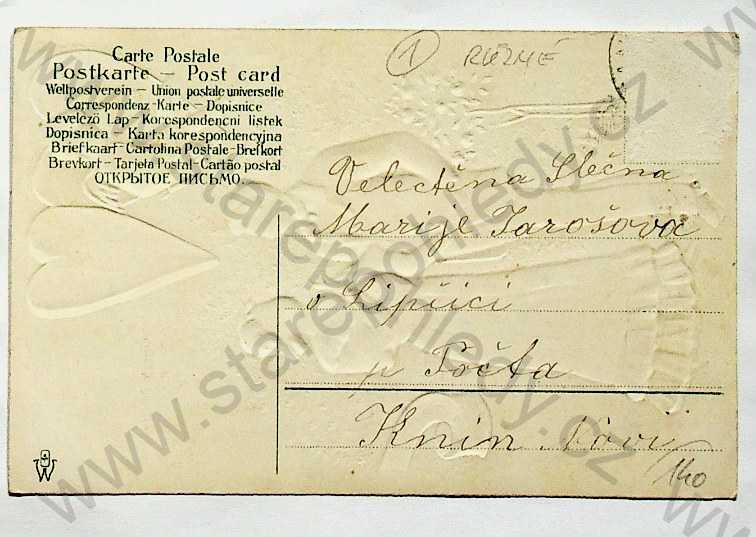 Carte Postale
Postkarte – Post card
Weltpostverein – Union postale universelle
Correspondenz-Karte – Dopisnice
Levelező Lap – Korespondencni listek
Dopisnica – Karta korespondencyjna
Briefkaart – Cartolina Postale – Brefkort
Brevkort – Tarjeta Postal – Cartão postal
ОТКРЫТОЕ ПИСЬМО.
1 RŮZNÉ
Velectěna Slečna
Marije Jarošova
v Lipšici
p Počta
Knin Novi
140
W
www.starepohledy.cz